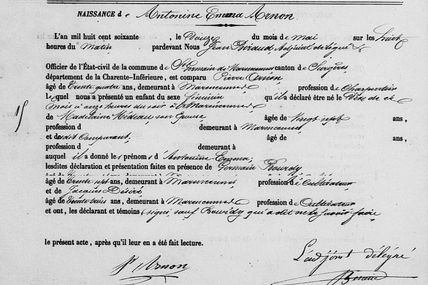 NAISSANCE d Antonine Emma Arnon
L'an mil huit cent soixante, le Douze du mois de Mai sur les huit
heures du Matin pardevant Nous Jean Adjoint
Officier de l'État-civil de la commune de St Germain de Marencennes canton de Surgères,
département de la Charente-Inférieure, est comparu Pierre Arnon
âgé de trente quatre ans, demeurant à Marencennes profession de Charpentier
lequel nous a présenté un enfant du sexe féminin qu'il a déclaré être né le
mois à onze heures du soir à Marencennes
de Madelaine son épouse âgé de vingt sept ans,
profession d demeurant à Marencennes
et dudit Comparant, âgé de ans,
profession d demeurant à
auquel il a donné les prénoms d'Antonine Emma,
lesdites déclaration et présentation faites en présence de Germain
âgé de trente sept ans, demeurant à Marencennes profession de Cultivateur
et de Jacques
âgé de trente trois ans, demeurant à Marencennes profession de Cultivateur
et ont, les déclarant et témoins signé sauf qui a dit ne le savoir faire
le présent acte, après qu'il leur en a été fait lecture.
L'adjoint délégué
P. Arnon